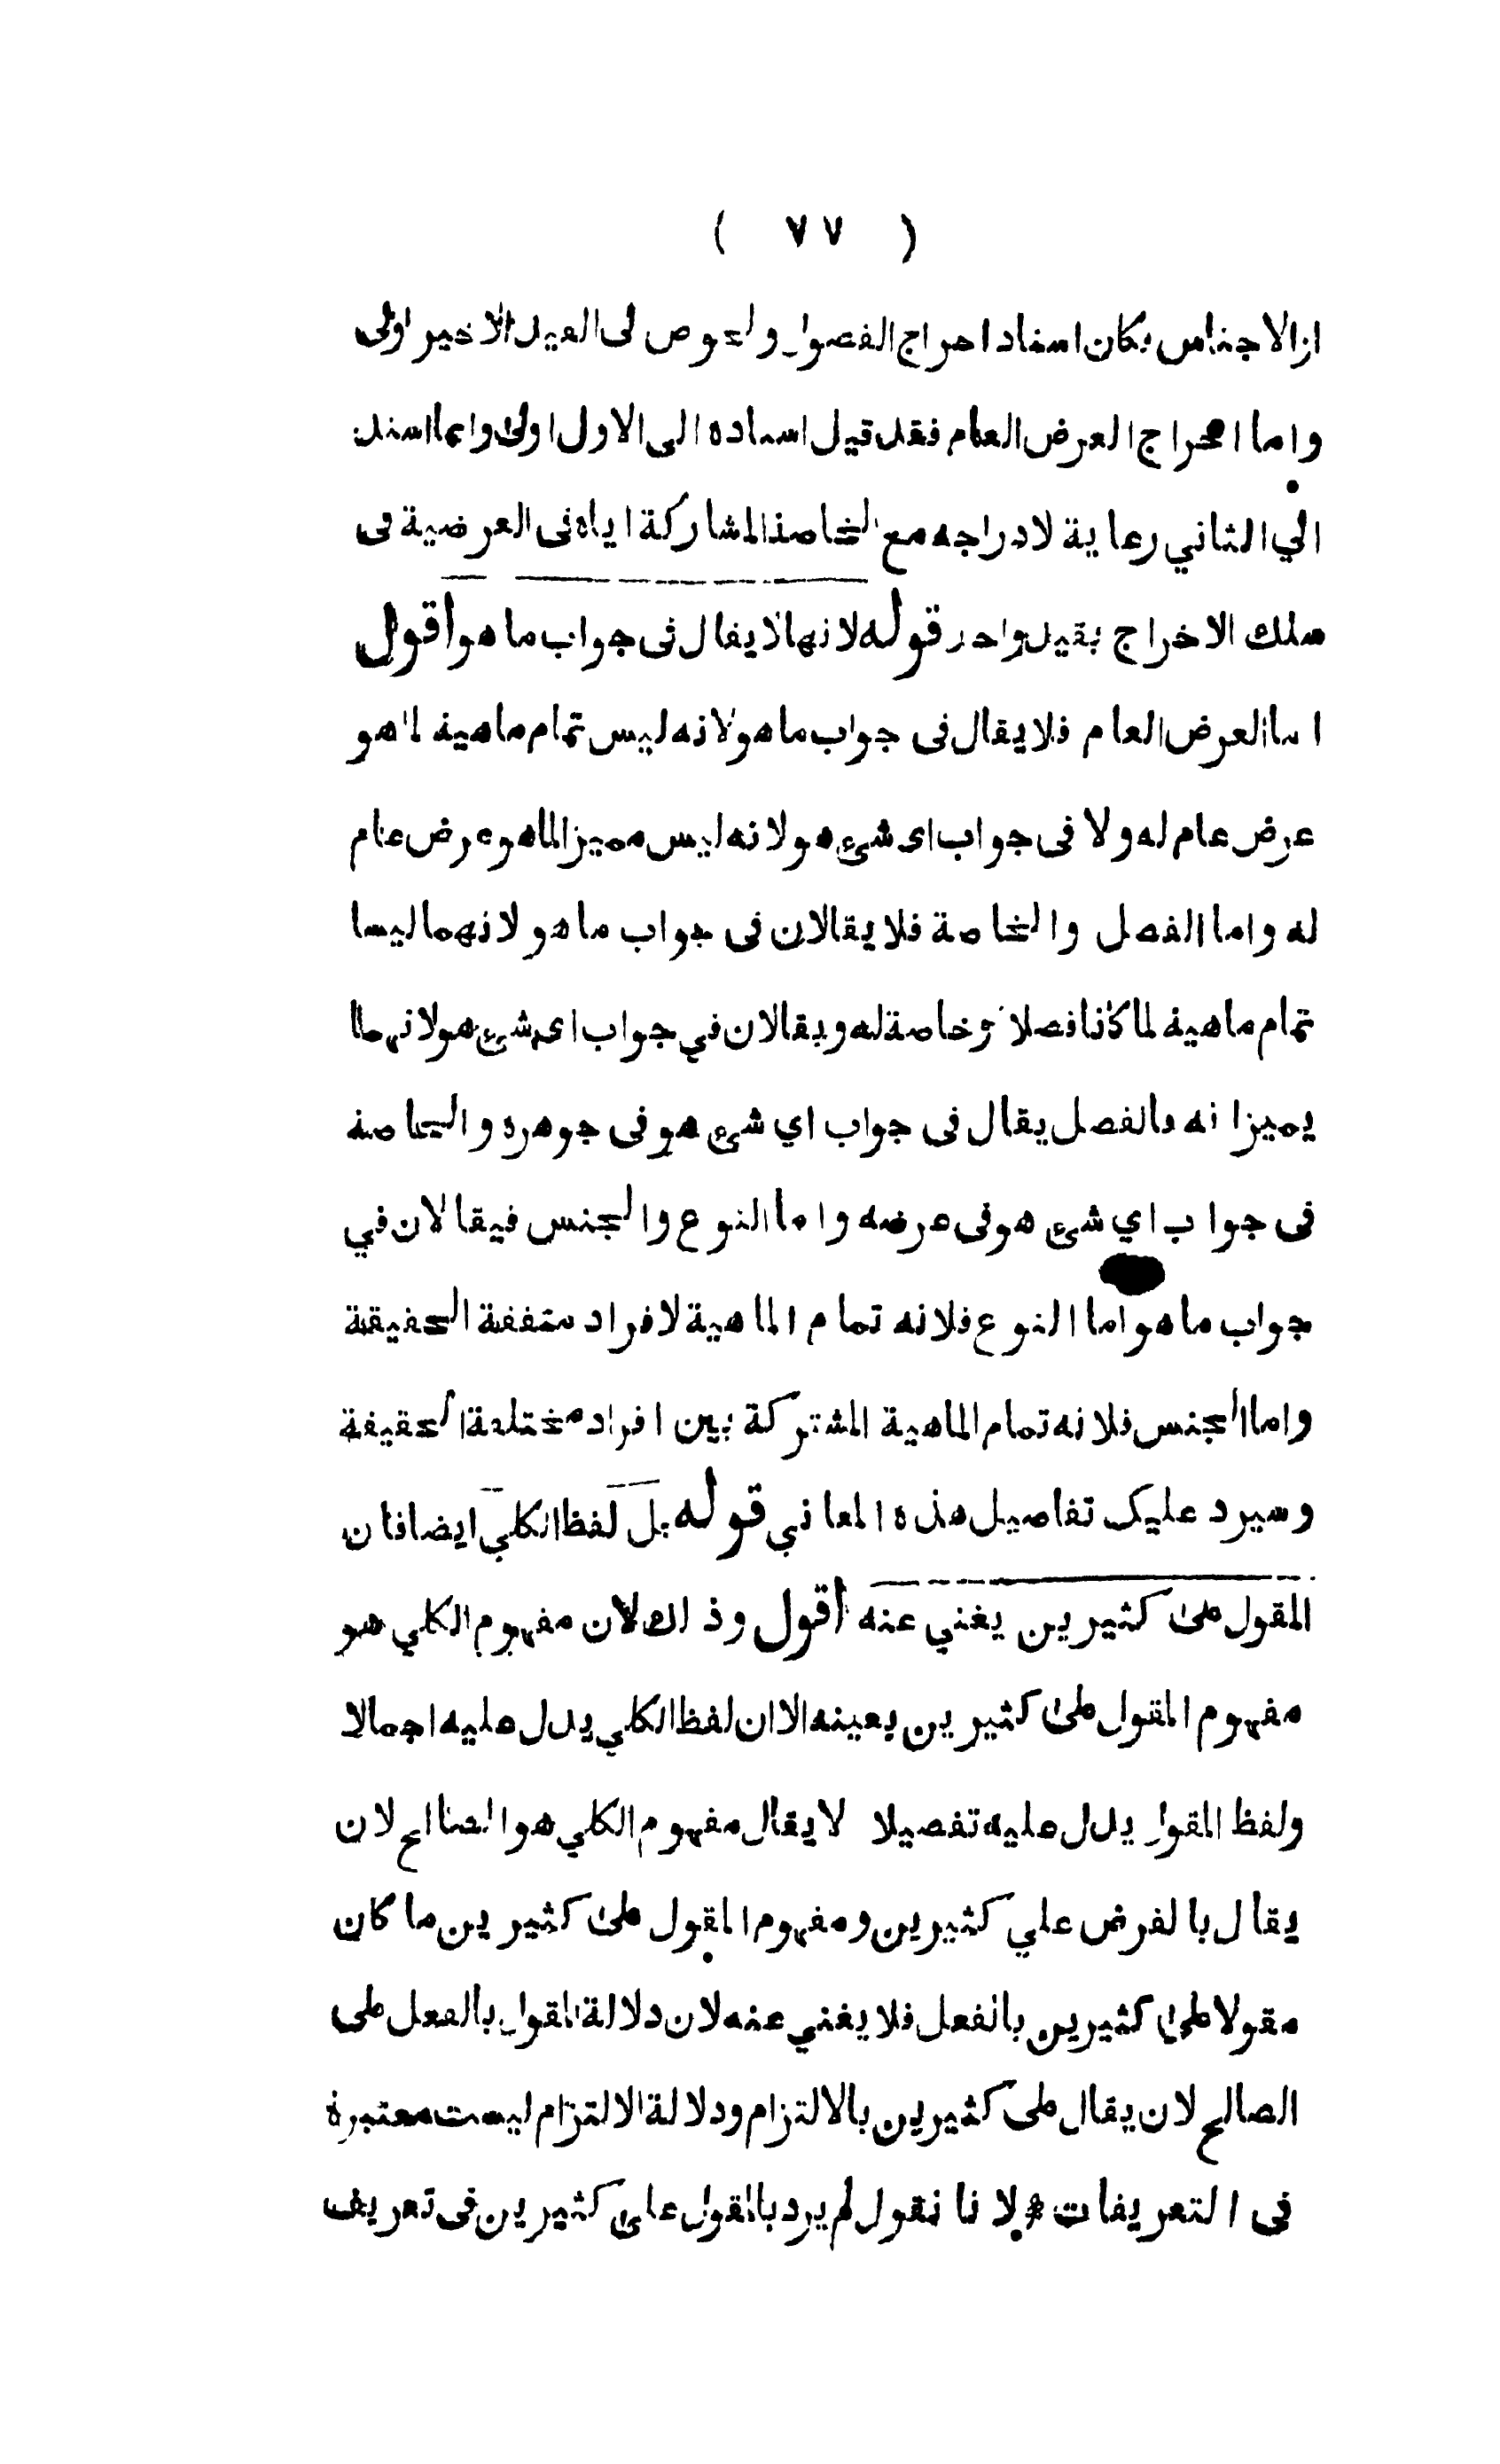 ( ٧٧ )
الاجناس فكان اسناد اخراج الفصول والخواص الى القيد الاخير اولى
واما اخراج العرض العام فقد قيل اسناده الى الاول اولى وانما اسند
الي الثاني رعاية لادراجه مع الخاصة المشاركة اياه فى العرضية فى
سلك الاخراج بقيد واحد قوله لانها لا يقال فى جواب ما هو أقول
اما العرض العام فلا يقال فى جواب ما هو لانه ليس تمام ماهية لما هو
عرض عام له ولا فى جواب اى شئ هو لانه ليس مميزا لما هو عرض عام
له واما الفصل والخاصة فلا يقالان فى جواب ما هو لانهما ليسا
تمام ماهية لما كانا فصلا وخاصة له ويقالان في جواب اى شئ هو لانهما
يميزانه فالفصل يقال فى جواب اي شئ هو فى جوهره والخاصة
فى جواب اي شئ هو فى عرضه واما النوع والجنس فيقالان في
جواب ما هو اما النوع فلانه تمام الماهية لافراد متفقة الحقيقة
واما الجنس فلانه تمام الماهية المشتركة بين افراد مختلفة الحقيقة
وسيرد عليك تفاصيل هذه المعاني قوله بل لفظ الكلي ايضا فان
المقول على كثيرين يغني عنه أقول وذلك لان مفهوم الكلي هو
مفهوم المقول على كثيرين بعينه الا ان لفظ الكلي يدل عليه اجمالا
ولفظ المقول يدل عليه تفصيلا لا يقال مفهوم الكلي هو الصالح لان
يقال بالفرض علي كثيرين ومفهوم المقول على كثيرين ما كان
مقولا على كثيرين بالفعل فلا يغني عنه لان دلالة المقول بالفعل على
الصالح لان يقال على كثيرين بالالتزام ودلالة الالتزام ليست معتبرة
فى التعريفات لانا نقول لم يرد بالمقول على كثيرين فى تعريف